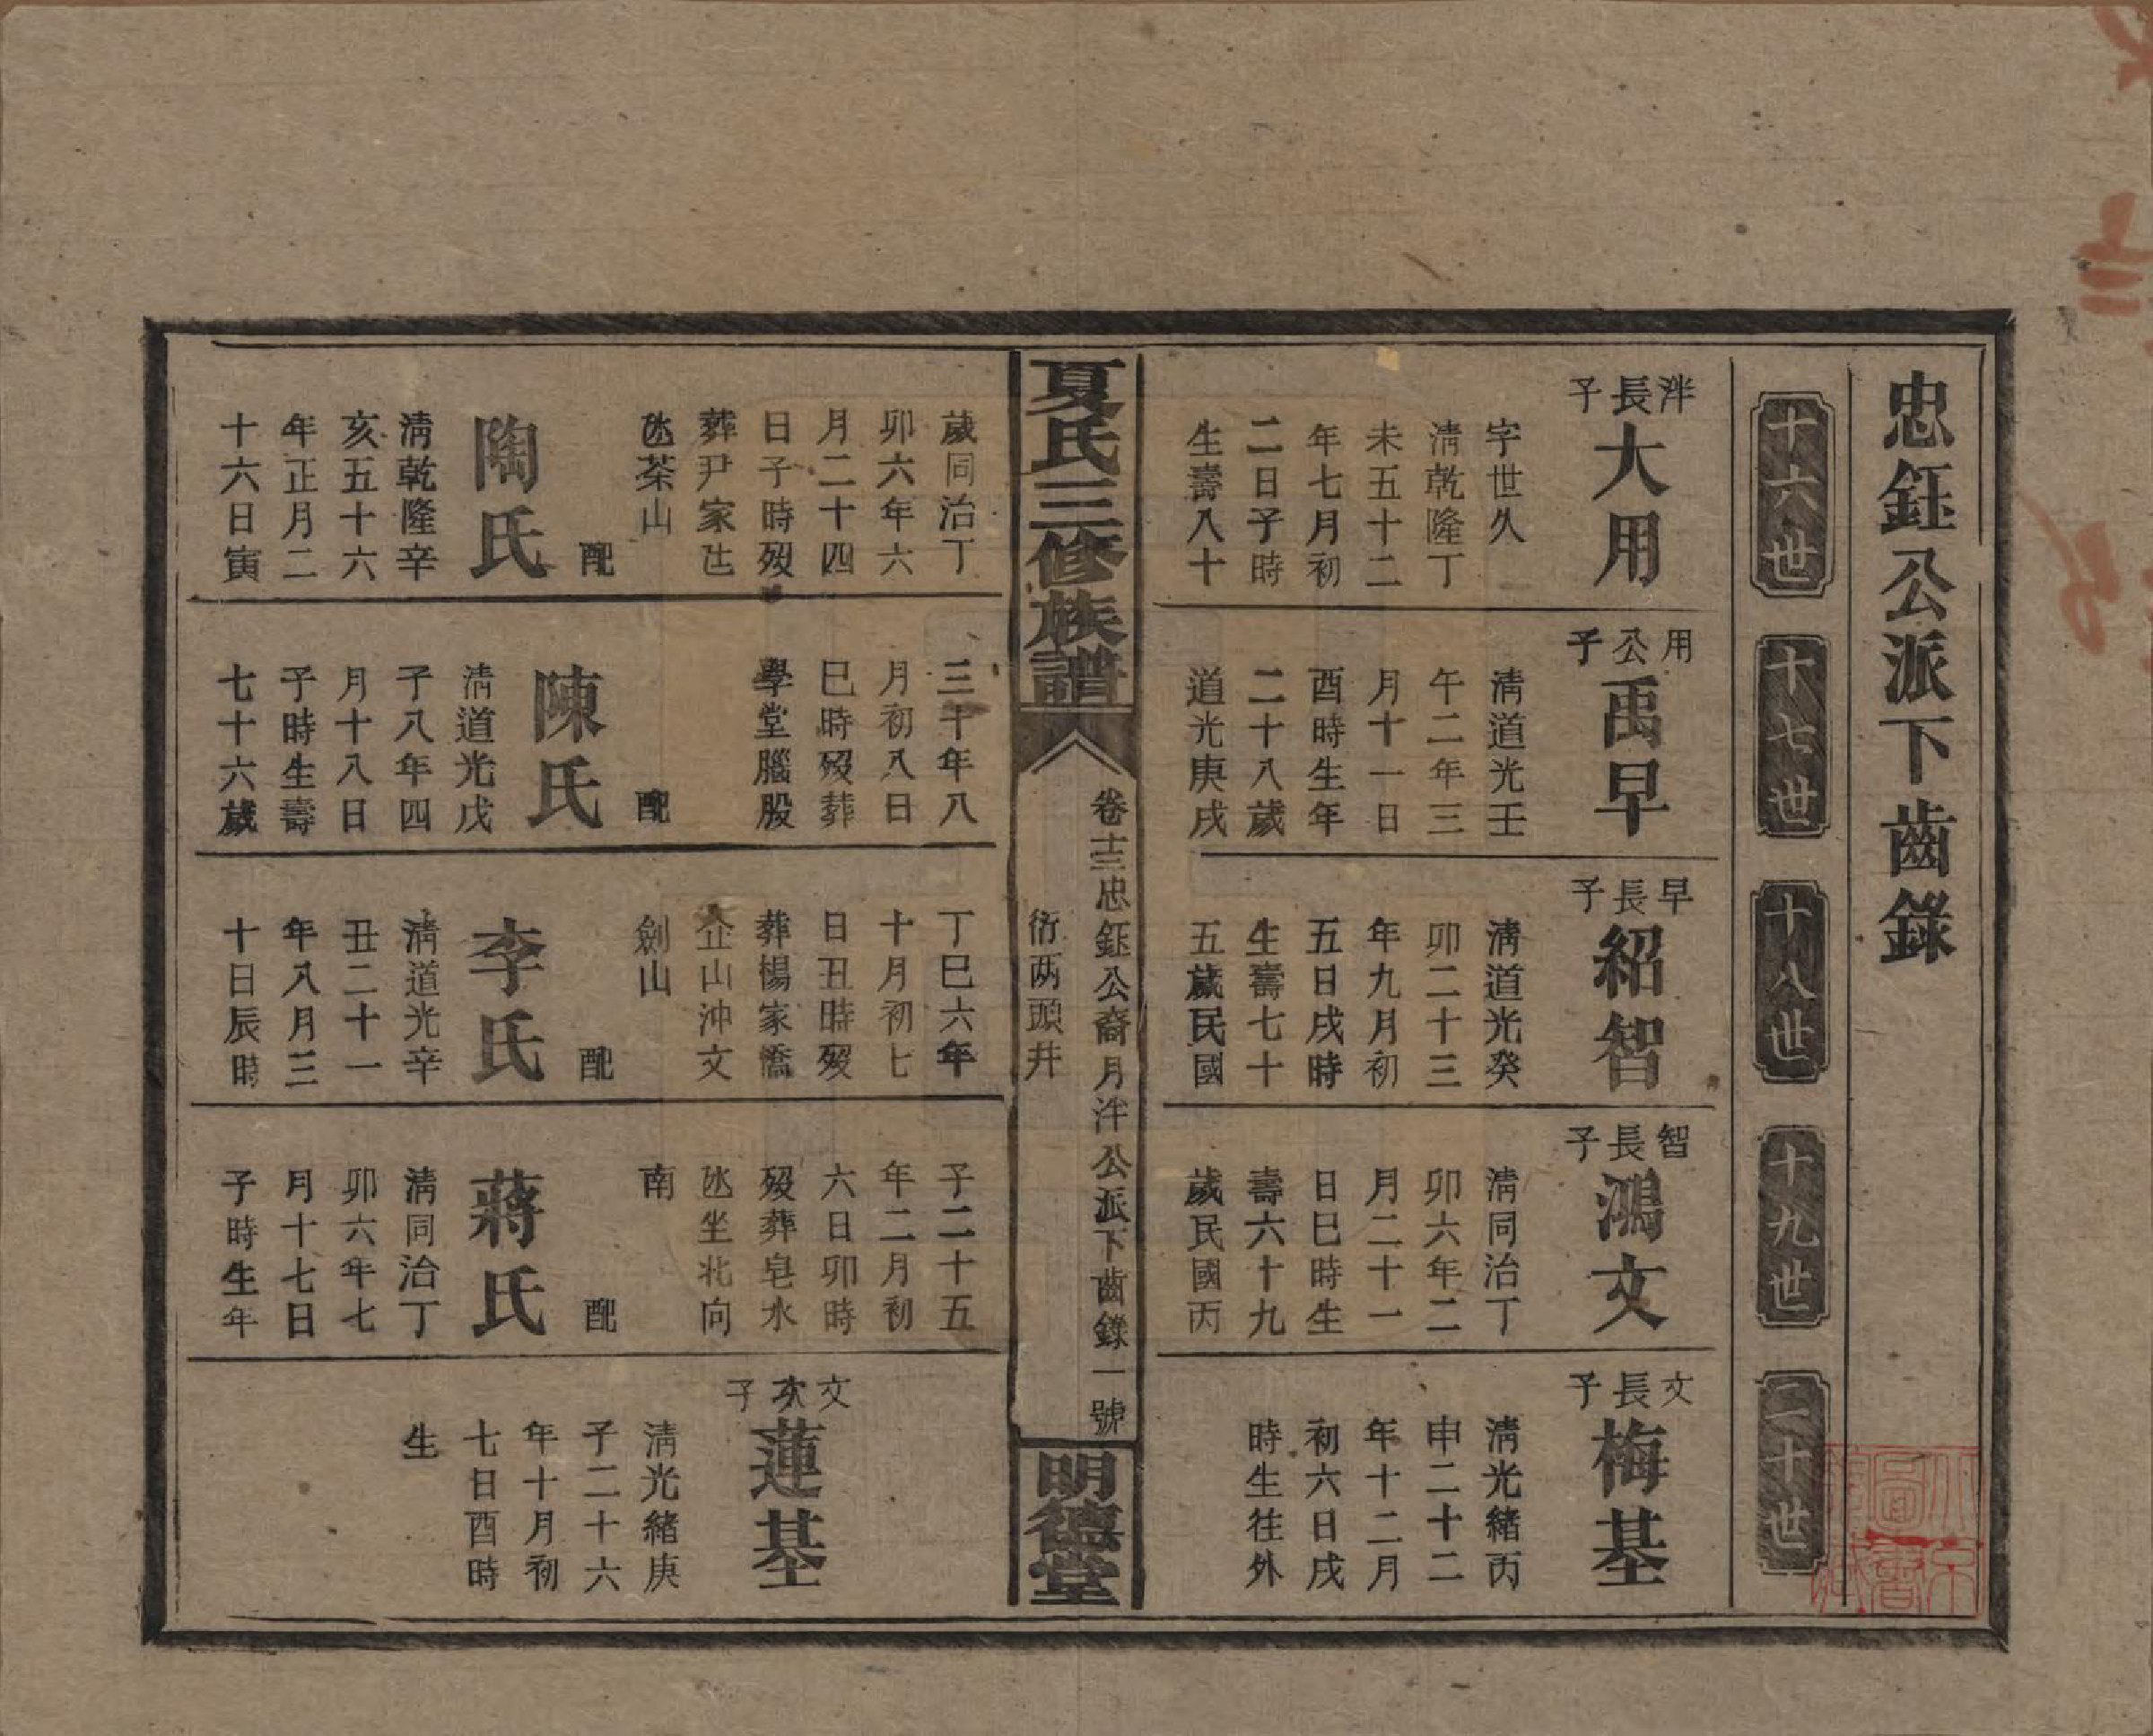 忠鈺公派下齒錄
十六世
十七世
十八世
十九世
二十世
泮長子
大用
字世久
清乾隆丁
未五十二
年七月初
二日子時
生壽八十
用公子
禹早
清道光壬
午二年三
月十一日
酉時生年
二十八歲
道光庚戌
早長子
紹智
清道光癸
卯二十三
年九月初
五日戌時
生壽七十
五歲民國
智長子
鴻文
清同治丁
卯六年二
月二十一
日巳時生
壽六十九
歲民國丙
文長子
梅基
清光緒丙
申二十二
年十二月
初六日戌
時生往外
夏氏三修族譜
卷十三忠鈺公裔月泮公派下齒錄一號
衍两頭井
明德堂
歲同治丁
卯六年六
月二十四
日子時歿
葬尹家
茶山
配
陶氏
清乾隆辛
亥五十六
年正月二
十六日寅
三十年八
月初八日
巳時歿葬
學堂腦股
配
陳氏
清道光戊
子八年四
月十八日
子時生壽
七十六歲
丁巳六年
十月初七
日丑時歿
葬楊家橋
企山沖文
劍山
配
李氏
清道光辛
丑二十一
年八月三
十日辰時
子二十五
年二月初
六日卯時
歿葬皂水
氹坐北向
南
配
蔣氏
清同治丁
卯六年七
月十七日
子時生年
文次子
蓮基
清光緒庚
子二十六
年十月初
七日酉時
生